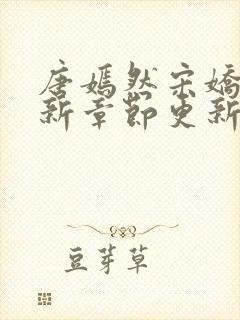 唐嫣然宋嬌
新章節更新
豆芽草